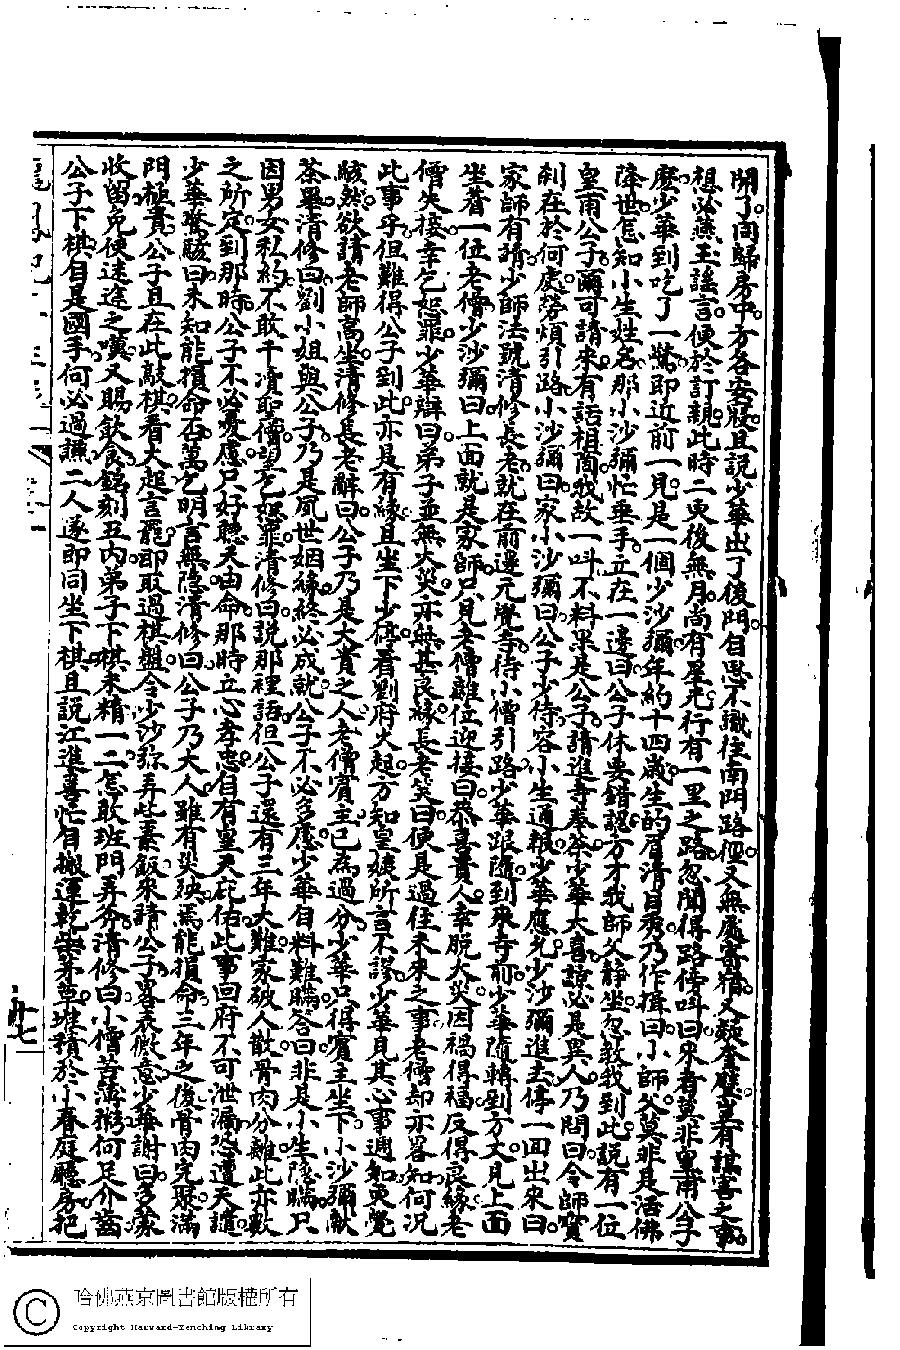 開了向歸房中方各安寢且說少華出了後門自思不識往南門路徑又無處寄宿又疑奎璧豈有謀害之事
想必燕玉謠言便於訂親此時二更後無月尚有星光行有一里之路忽聞得路傍叫曰來者莫非皇甫公子
麽少華到吃了一驚即近前一見是一個少沙彌年約十四歲生的眉清目秀乃作揖曰小師父莫非是活佛
降世怎知小生姓名那小沙彌忙垂手立在一邊曰公子休要錯認方才我師父靜坐忽教我到此說有一位
皇甫公子爾可請來有話相商我故一叫不料果是公子請進寺奉茶少華大喜諒必是異人乃問曰令師寶
刹在於何處勞煩引路小沙彌曰家小沙彌曰公子少待容小生通報少華應允少沙彌進去停一面出來曰
家師有請少師法號清修長老就在前邊元覺寺待小僧引路少華跟隨到來寺前少華隨轉到方丈見上面
坐着一位老僧少沙彌曰上面就是家師只見老僧離位迎接曰恭喜貴人幸脫大災因禍得福反得良緣老
僧失接幸乞恕罪少華辭曰弟子並無大災亦無甚良緣長老笑曰便是過徃未來之事老僧却亦畧知何況
此事乎但難得公子到此亦是有緣且坐下少停看劉府火起方知皇姨所言不謬少華見其心事週知更覺
駭然欲請老師高坐清修長老辭曰公子乃是大貴之人老僧賓主已為過分少華只得賓主坐下小沙彌獻
茶畢清修曰劉小姐與公子乃是夙世姻緣終必成就公子不必多慮少華自料難瞞答曰非是小生隱瞞只
因男女私約不敢干瀆聖僧望乞恕罪清修曰說那裡話但公子還有三年大難家破人散骨肉分離此亦數
之所定到那時公子不必憂慮只好聽天由命那時立心孝忠自有皇天庇佑此事回府不可泄漏恐遭天譴
少華驚駭曰未知能損命否萬乞明言無隱清修曰公子乃大人雖有災殃焉能損命三年之後骨肉完聚滿
門極貴公子且在此敲棋看火起言罷即取過棋盤令少沙弥弄些素飯來請公子畧表微意少華謝曰多蒙
收留免使迷途之嘆又賜飲食銘刻五內弟子下棋未精一二怎敢班門弄斧清修曰小僧苦薄粥何足介齒
公子下棋自是國手何必過謙二人遂即同坐下棋且說江進喜忙自搬運乾柴茅草堆積於小春庭廳房把
哈佛燕京圖書館版權所有
Copyright Harvard-Yenching Library